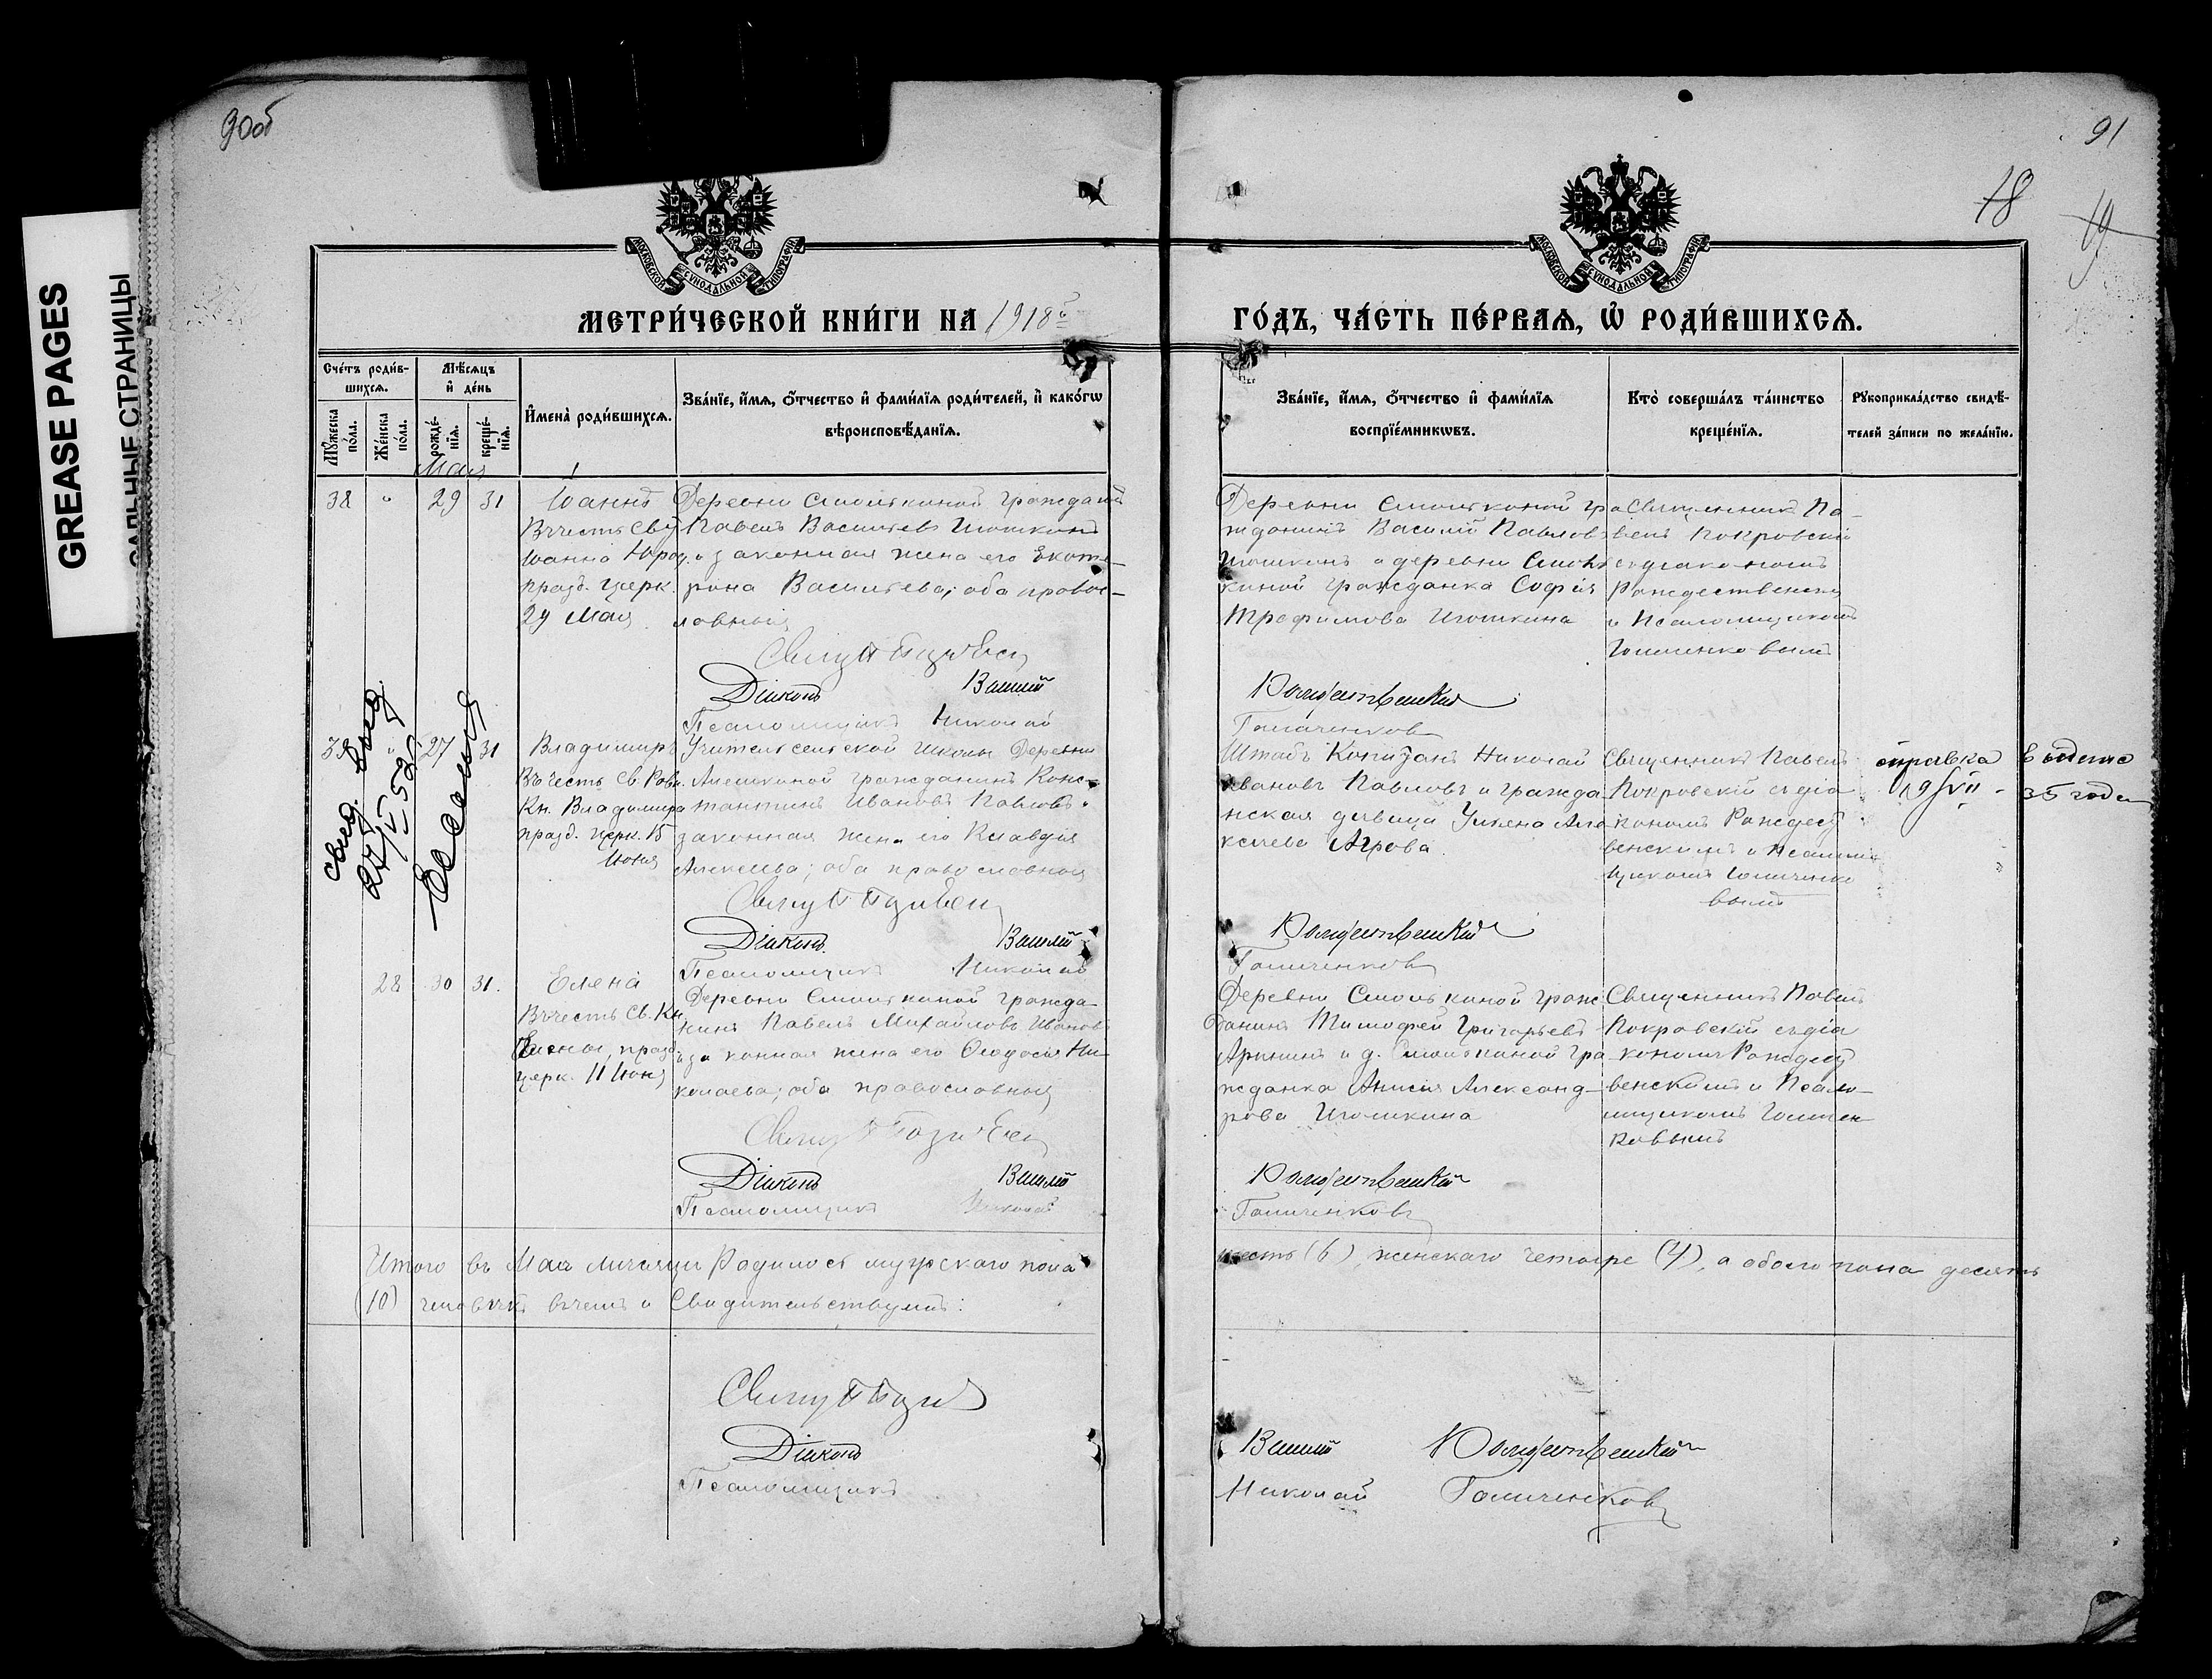 90об
91
18
19
GREASE PAGES
САЛЬНЫЕ СТРАНИЦЫ
МОСКОВСКОЙ СѴНОДАЛЬНОЙ ТИПОГРАФІИ
МОСКОВСКОЙ СѴНОДАЛЬНОЙ ТИПОГРАФІИ
МЕТРИ́ЧЕСКОЙ КНИ́ГИ НА 1918й
ГО́ДЪ, ЧА́СТЬ ПЕ́РВАЯ, Ѡ҆ РОДИ́ВШИХСѦ.
Сче́тъ роди́в-
шихсѧ.
Мꙋ́жеска по́ла.
Же́нска по́ла.
Мѣ́сяцъ
и҆ де́нь
рожде́-
нїѧ.
креще́-
нїѧ.
И҆мена̀ роди́вшихсѧ.
Зва́нїе, и҆́мѧ, ѻ҆́тчество и҆ фами́лїѧ роди́телей, и҆ како́гѡ
вѣроисповѣ́данїѧ.
Зва́нїе, и҆́мѧ, ѻ҆́тчество и҆ фами́лїѧ
воспрїе́мникѡвъ.
Кто̀ соверша́лъ та́инство
креще́нїѧ.
Рꙋкоприкла́дство свидѣ́-
телей за́писи по жела́нїю.
Мая
38 " 29 31
Іоаннъ
Въ честь Св.
Іоанна Юрод.
празд. церк.
29 Мая
Деревни Смолькиной гражданинъ
Павелъ Васильевъ Игошкинъ
и законная жена его Екате-
рина Васильева; оба правос-
лавныя
Діаконъ Василій
Псаломщикъ Николай
Деревни Смолькиной гра
жданинъ Василій Павловъ
Игошкинъ и деревни Смоль
киной гражданка Софія
Трофимова Игошкина
Священникъ Па-
велъ Покровскій
съ діакономъ
Рождественским
и Псаломщикомъ
Голиченковымъ
Рождественскій
Голиченковъ
39 " 27 31
Владимиръ
Въ честь Св. Равн.
Кн. Владимира
празд. церк. 15
Июня
Учитель сельской школы Деревни
Алешкиной гражданинъ Конс-
тантинъ Ивановъ Павловъ и
законная жена его Клавдія
Алексеева; оба православныя
Діаконъ Василій
Псаломщикъ Николай
Штабъ Капитанъ Николай
Ивановъ Павловъ и гражда
нская девица Ульяна Але
ксеева Агрова
Священникъ Павелъ
Покровскій съ діа
кономъ Рождест
венскимъ и Псалом
щикомъ Голиченко
вымъ
Рождественскій
Голиченковъ
справка выдана
19/VII - 35 года
свид. выд.
27/V 52
28 30 31.
Елена
Въ честь Св. Кн.
Елены, празд.
церк. 11 Июня
Деревни Смолькиной гражда-
нинъ Павелъ Михайловъ Ивановъ
и законная жена его Феодосія Ни-
колаева; оба православныя
Діаконъ Василій
Псаломщикъ Николай
Деревни Смолькиной граж
данинъ Тимофей Григорьевъ
Аринин и д. Смолькиной гра
жданка Анисія Александ-
рова Игошкина
Священникъ Павелъ
Покровскій съ діа
кономъ Рождест
венскимъ и Псало-
мщикомъ Голичен
ковымъ
Рождественскій
Голиченковъ
Итого въ Мае месяце Родилось мужскаго пола шесть (6), женскаго четыре (4), а обоего пола десять
(10) человекъ въ чемъ и Свидетельствуемъ:
Діаконъ Василій Рождественскій
Псаломщикъ Николай Голиченковъ